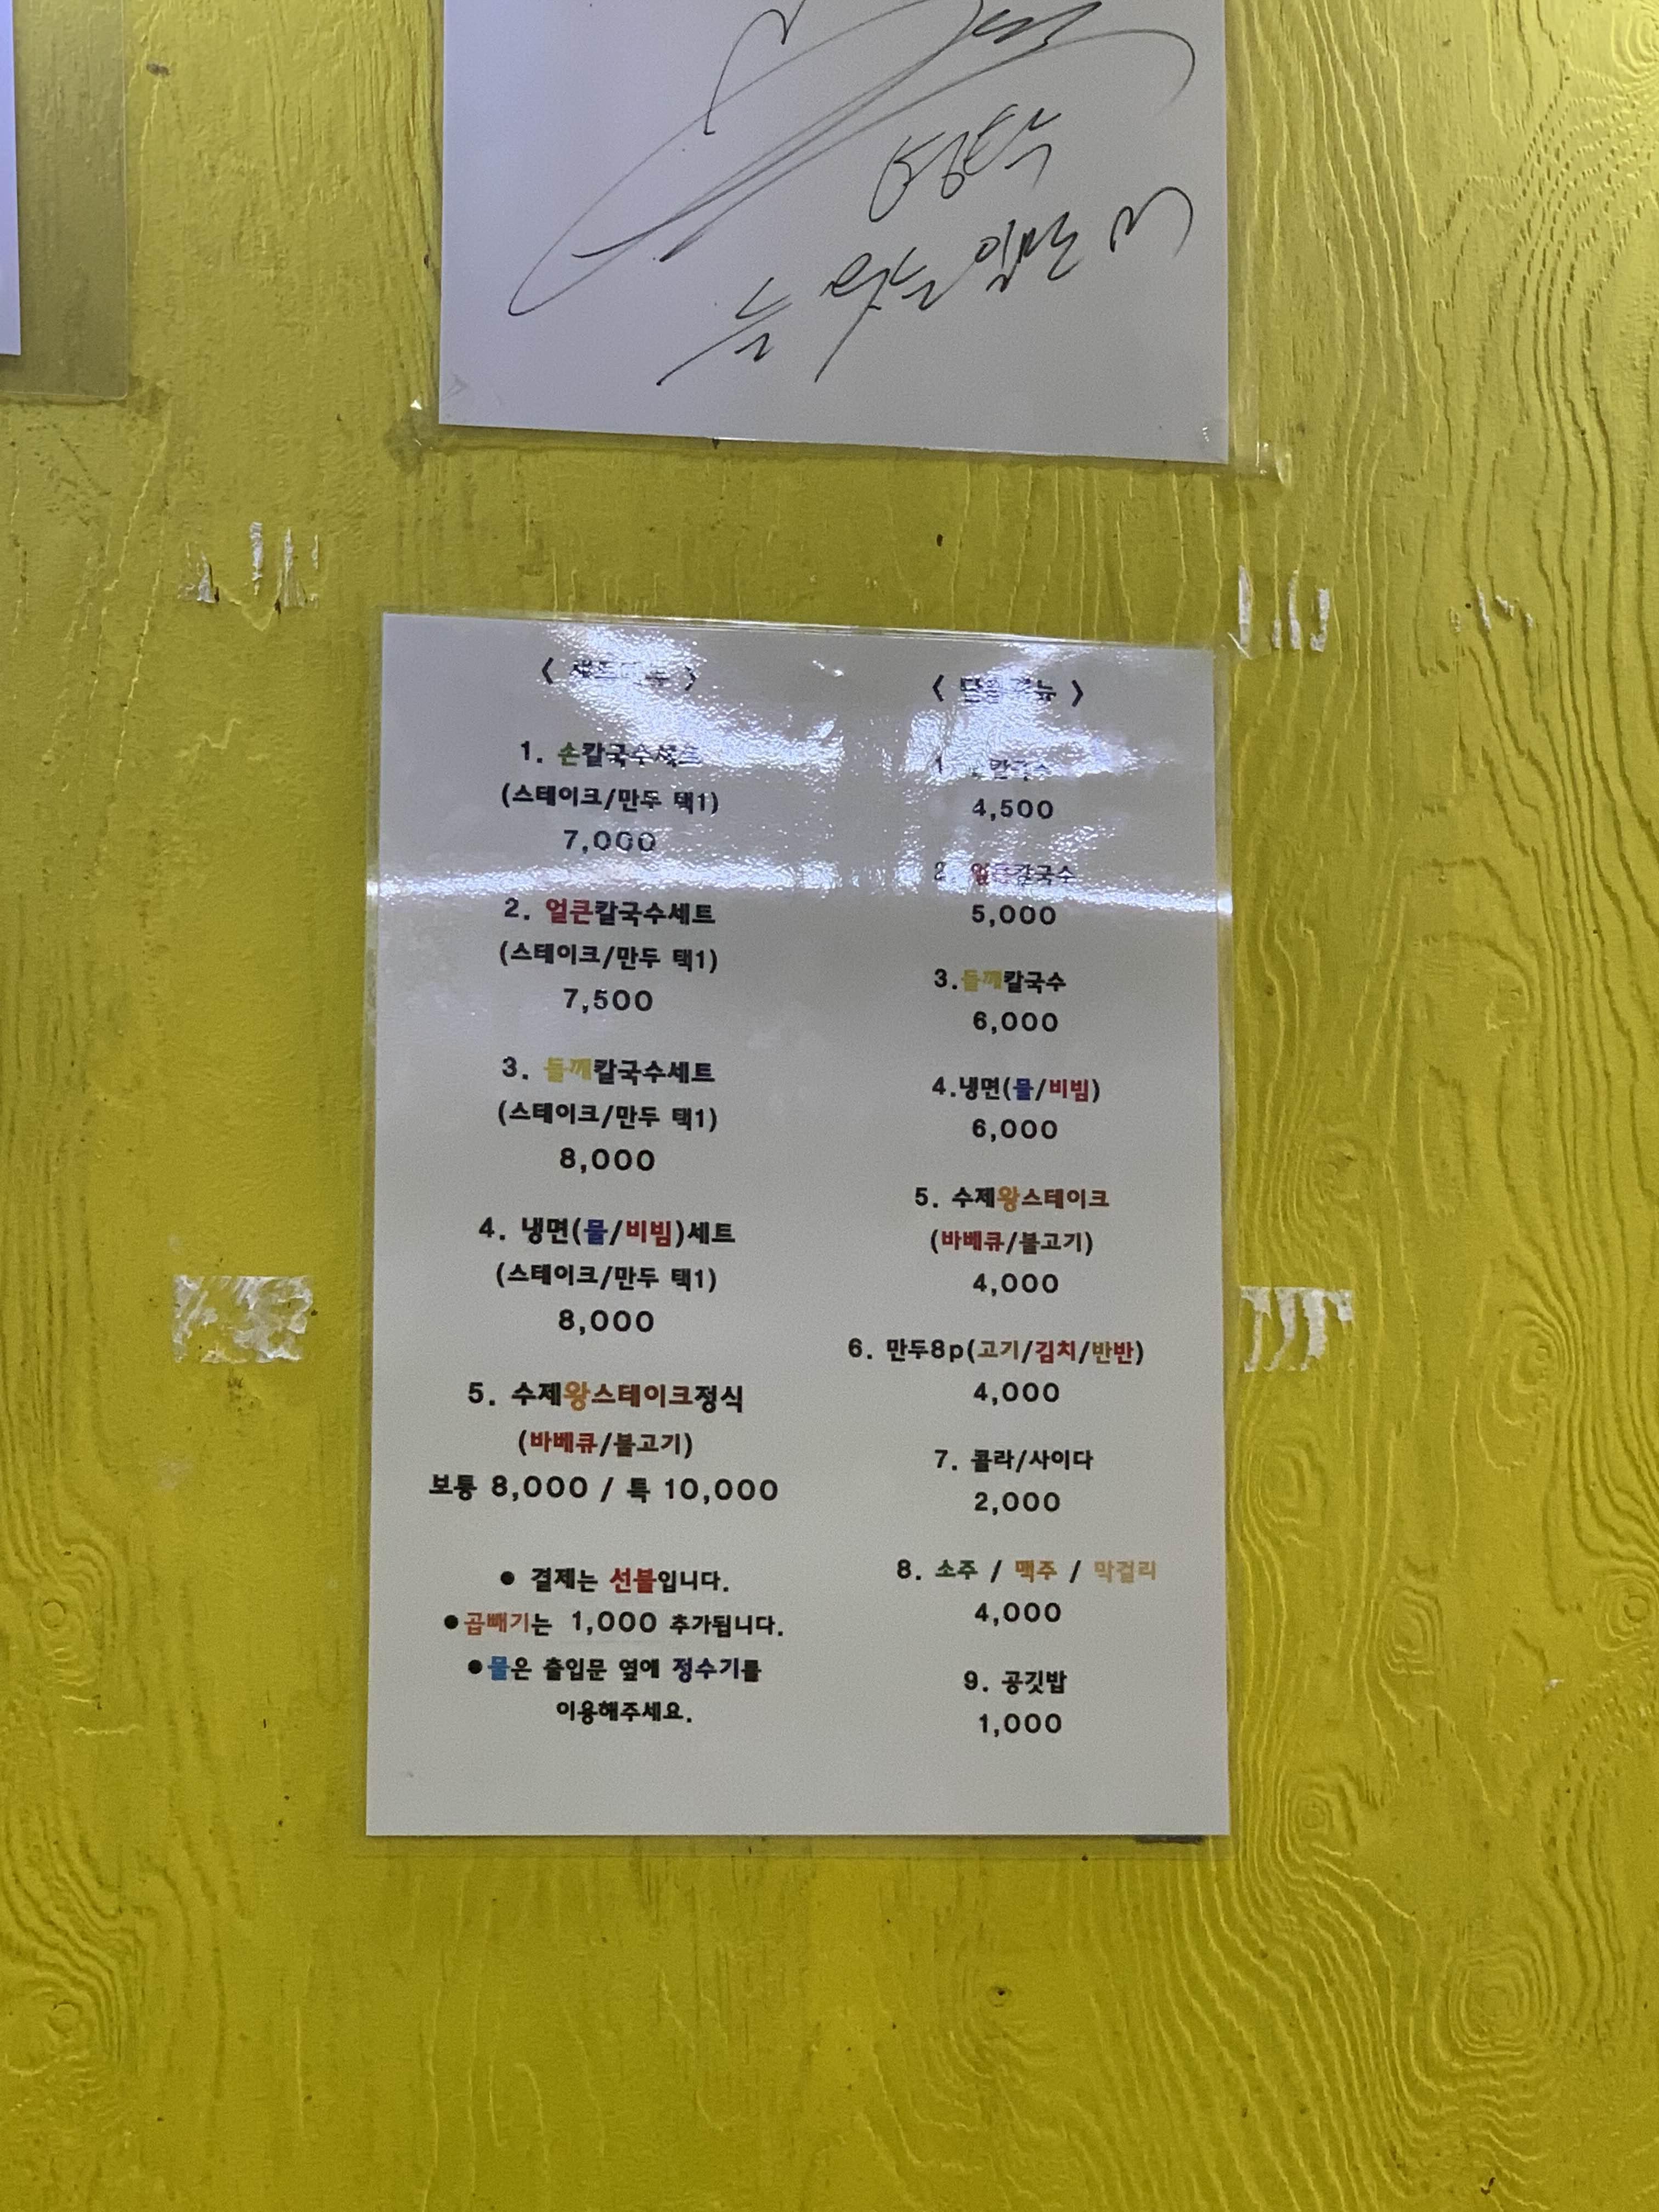 늘 웃는 일만
< 세트메뉴 >
1. 손칼국수세트
(스테이크/만두 택1)
7,000
2. 얼큰칼국수세트
(스테이크/만두 택1)
7,500
3. 들깨칼국수세트
(스테이크/만두 택1)
8,000
4. 냉면(물/비빔)세트
(스테이크/만두 택1)
8,000
5. 수제왕스테이크정식
(바베큐/불고기)
보통 8,000 / 특 10,000
● 결제는 선불입니다.
●곱빼기는 1,000 추가됩니다.
●물은 출입문 옆에 정수기를
이용해주세요.
< 단품메뉴 >
1. 손칼국수
4,500
2. 얼큰칼국수
5,000
3.들깨칼국수
6,000
4.냉면(물/비빔)
6,000
5. 수제왕스테이크
(바베큐/불고기)
4,000
6. 만두8p(고기/김치/반반)
4,000
7. 콜라/사이다
2,000
8. 소주 / 맥주 / 막걸리
4,000
9. 공깃밥
1,000